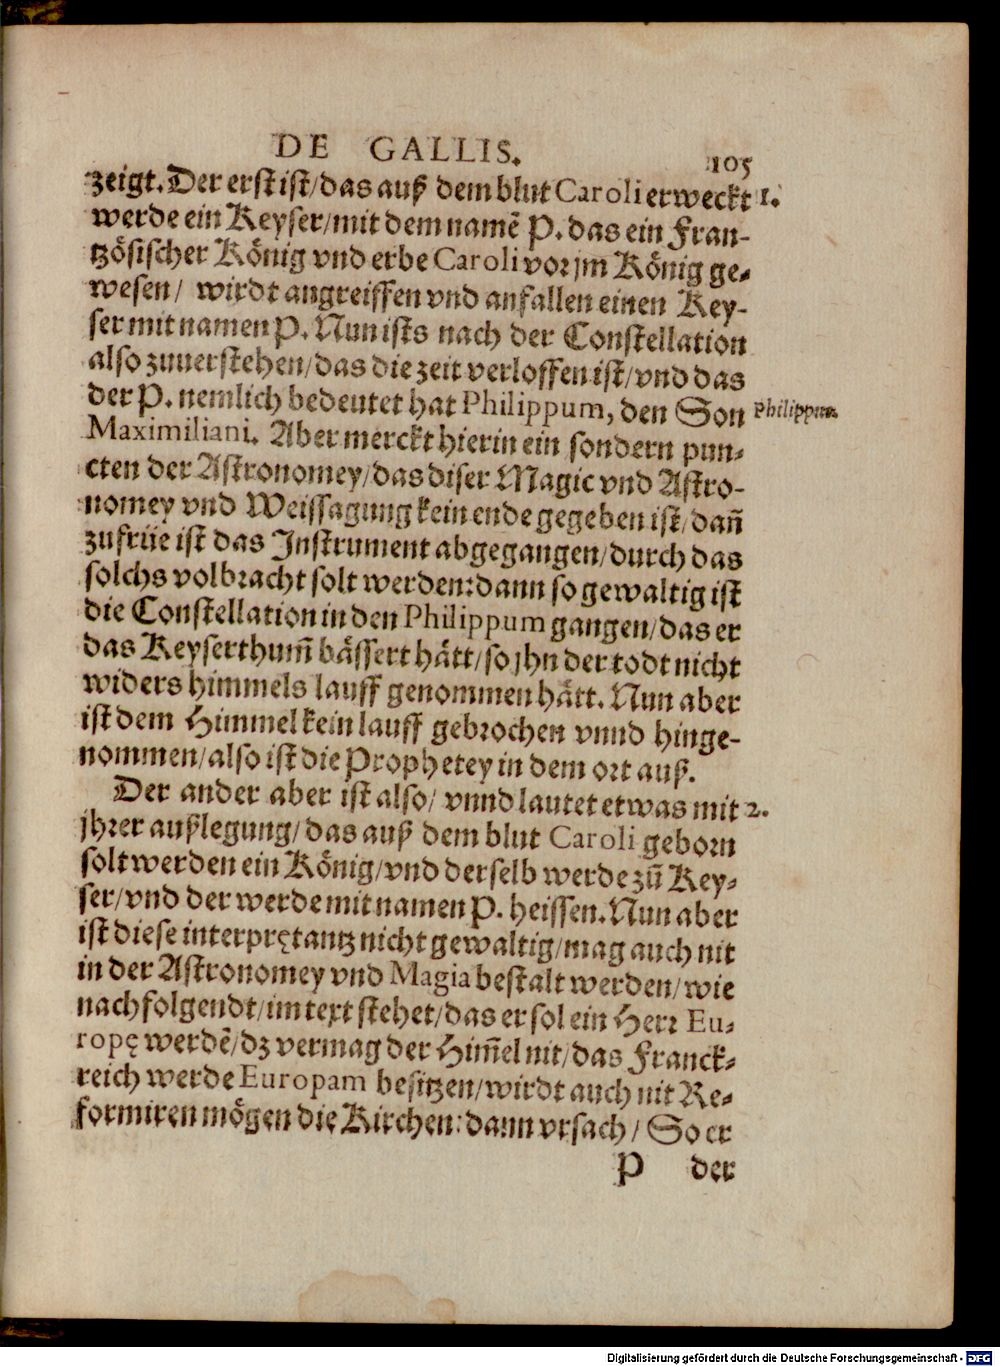 DE GALLIS.
105
zeigt. Der erst ist/das auß dem blut Caroli erweckt 1.
werde ein Keyser/mit dem namẽ P. das ein Fran-
tzösischer König vnd erbe Caroli vor jm König ge-
wesen/ wirdt angreiffen vnd anfallen einen Key-
ser mit namen P. Nun ists nach der Constellation
also zuuerstehen/das die zeit verloffen ist/vnd das
der P. nemlich bedeutet hat Philippum, den Son Philippum.
Maximiliani. Aber merckt hierin ein sondern pun-
cten der Astronomey/das diser Magic vnd Astro-
nomey vnd Weissagung kein ende gegeben ist/dañ
zufrüe ist das Instrument abgegangen/durch das
solchs volbracht solt werden:dann so gewaltig ist
die Constellation in den Philippum gangen/das er
das Keyserthum̃ bässert hätt/so jhn der todt nicht
widers himmels lauff genommen hätt. Nun aber
ist dem Himmel kein lauff gebrochen vnnd hinge-
nommen/also ist die Prophetey in dem ort auß.
Der ander aber ist also/ vnnd lautet etwas mit 2.
jhrer außlegung/das auß dem blut Caroli geborn
solt werden ein König/vnd derselb werde zũ Key-
ser/vnd der werde mit namen P. heissen. Nun aber
ist diese interprętantz nicht gewaltig/mag auch nit
in der Astronomey vnd Magia bestalt werden/wie
nachfolgendt/im text stehet/das er sol ein Herr Eu-
ropę werdẽ/dz vermag der Him̃el nit/das Franck-
reich werde Europam besitzen/wirdt auch nit Re-
formiren mögen die Kirchen:dann vrsach/ So er
P der
Digitalisierung gefördert durch die Deutsche Forschungsgemeinschaft - DFG